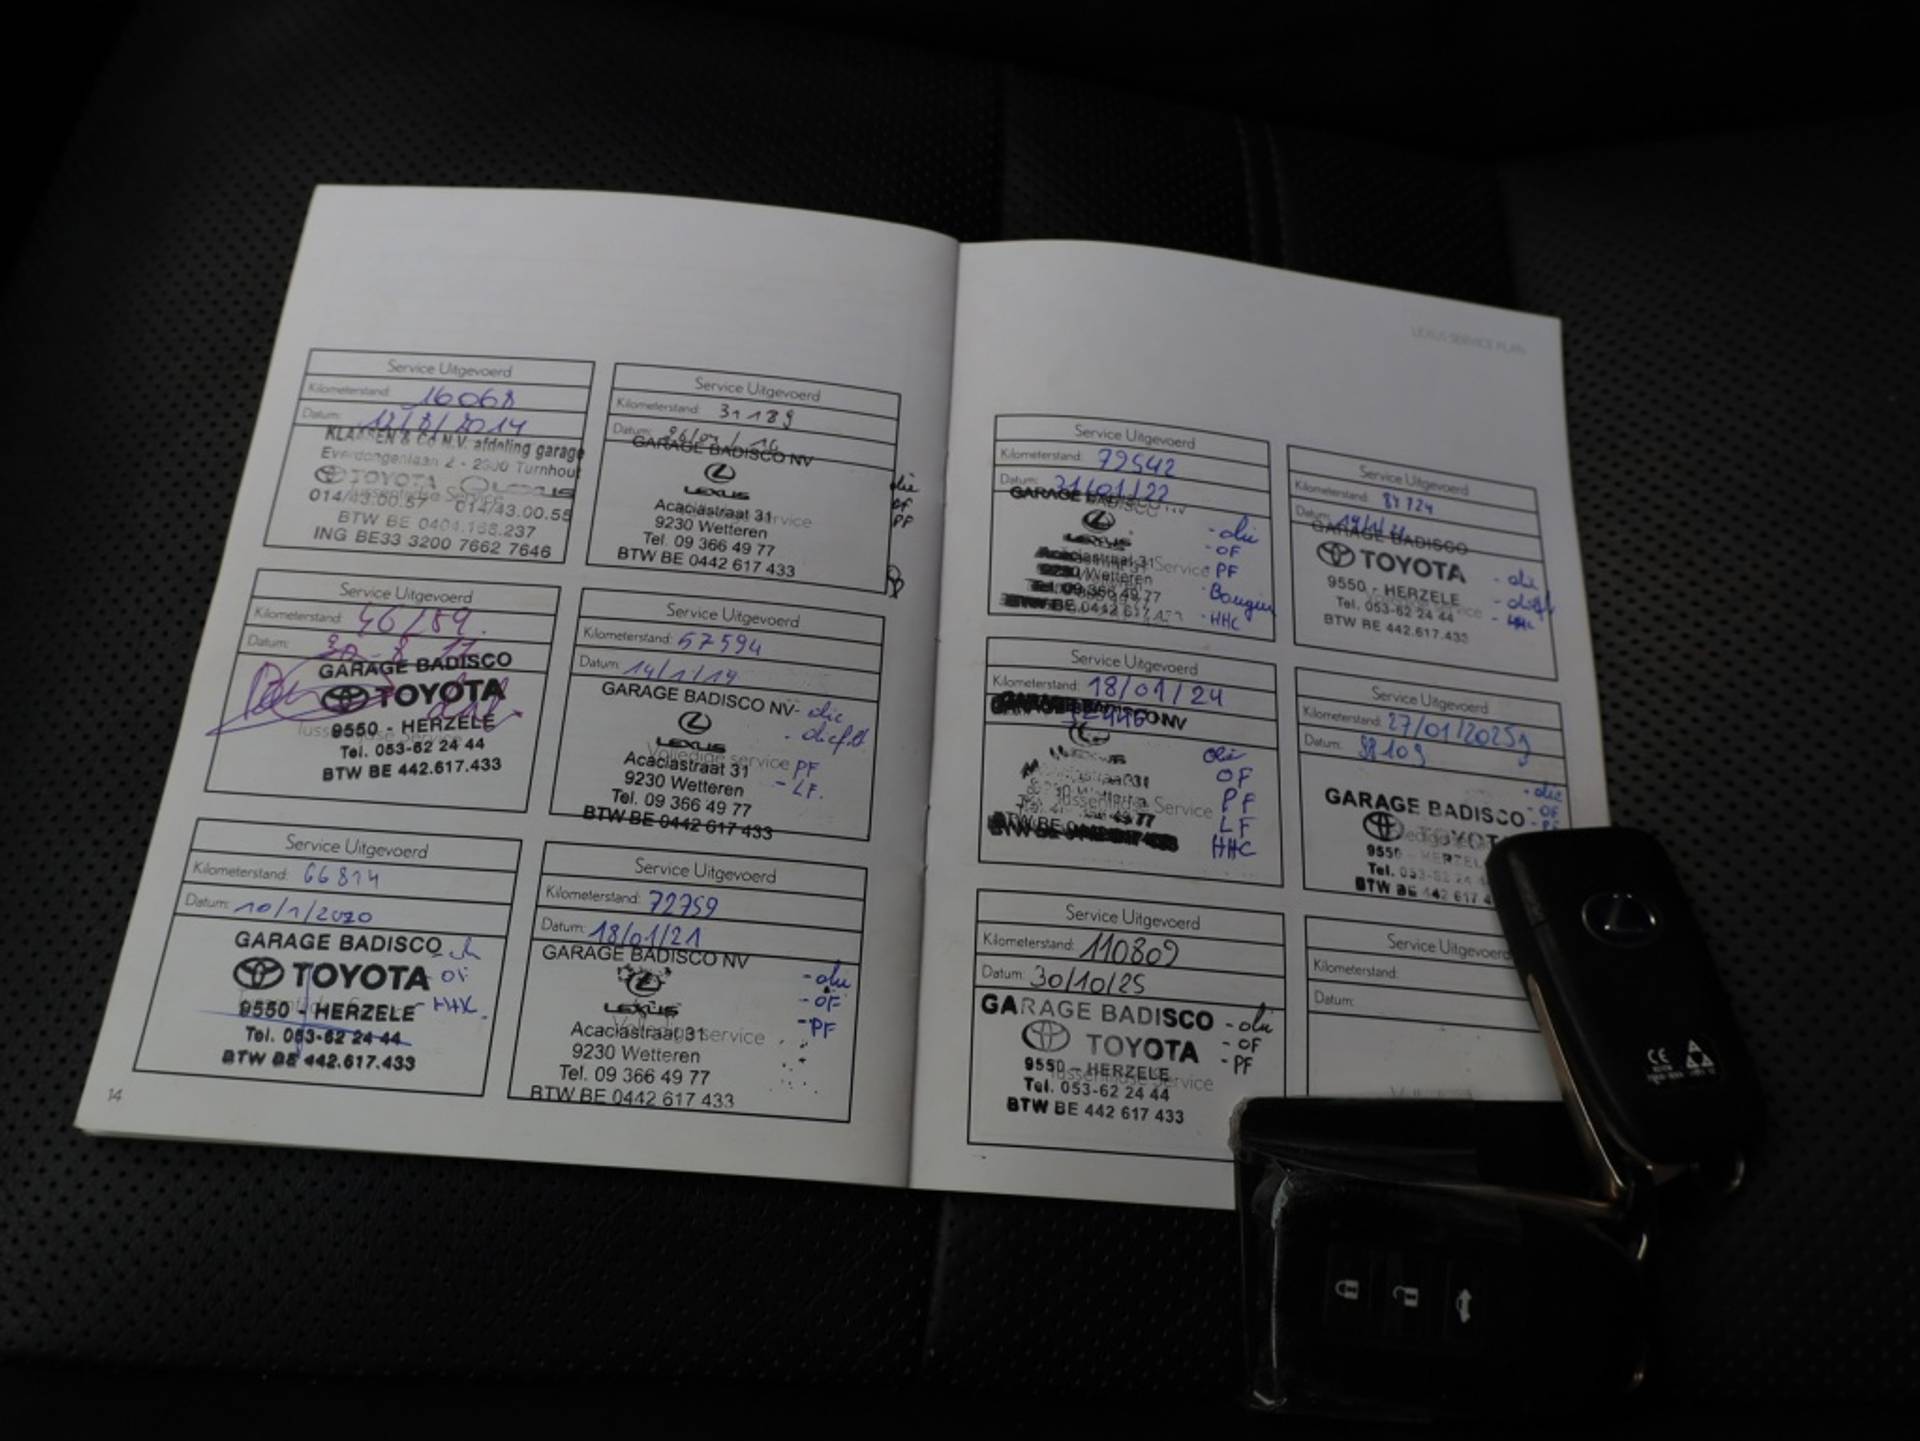 LEXUS SERVICE PLAN
Service Uitgevoerd
Kilometerstand: 16068
Datum: 12/8/2014
KLAASEN & Co N.V. afdeling garage
Everdongenlaan 2 - 2300 Turnhout
TOYOTA LEXUS
Tussentijdse Service
014/43.00.57 014/43.00.55
BTW BE 0404.168.237
ING BE33 3200 7662 7646
Service Uitgevoerd
Kilometerstand: 31189
Datum:
GARAGE BADISCO NV
LEXUS
Acaciastraat 31
Volledige service
9230 Wetteren
Tel. 09 366 49 77
BTW BE 0442 617 433
olie
OF
PF
Service Uitgevoerd
Kilometerstand: 46189
Datum:
GARAGE BADISCO
TOYOTA
9550 - HERZELE
Tussentijdse Service
Tel. 053-62 24 44
BTW BE 442.617.433
Service Uitgevoerd
Kilometerstand: 57594
Datum: 14/1/19
GARAGE BADISCO NV - olie
- oliefilt
LEXUS
Volledige service
Acaciastraat 31 PF
9230 Wetteren - LF.
Tel. 09 366 49 77
BTW BE 0442 617 433
Service Uitgevoerd
Kilometerstand: 66814
Datum: 10/1/2020
GARAGE BADISCO
TOYOTA - OF
9550 - HERZELE
Tel. 053-62 24 44
BTW BE 442.617.433
Service Uitgevoerd
Kilometerstand: 72759
Datum: 18/01/21
GARAGE BADISCO NV
- olie
LEXUS - OF
Volledige service - PF
Acaciastraat 31
9230 Wetteren
Tel. 09 366 49 77
BTW BE 0442 617 433
14
Service Uitgevoerd
Kilometerstand: 79542
Datum: 31/01/22
GARAGE BADISCO NV
LEXUS - olie
- OF
Acaciastraat 31 Service - PF
9230 Wetteren
Tel. 09 366 49 77 - Bougies
BTW BE 0442 617 433 - HHC
Service Uitgevoerd
Kilometerstand: 84724
Datum:
GARAGE BADISCO
TOYOTA - olie
9550 - HERZELE
Volledige service
Tel. 053-62 24 44 - HHC
BTW BE 442.617.433
Service Uitgevoerd
Kilometerstand: 18/01/24
GARAGE BADISCO NV
LEXUS
olie
OF
PF
Tussentijdse Service
LF
HHC
Service Uitgevoerd
Kilometerstand: 27/01/2025
Datum: 98109
- olie
GARAGE BADISCO - OF
TOYOTA - PF
9550 - HERZELE
Tel. 053-62 24 4
BTW BE 442 617 4
Service Uitgevoerd
Kilometerstand: 110809
Datum: 30/10/25
GARAGE BADISCO - olie
TOYOTA - OF
9550 - HERZELE - PF
Tussentijdse Service
Tel. 053-62 24 44
BTW BE 442 617 433
Service Uitgevoerd
Kilometerstand:
Datum:
CE